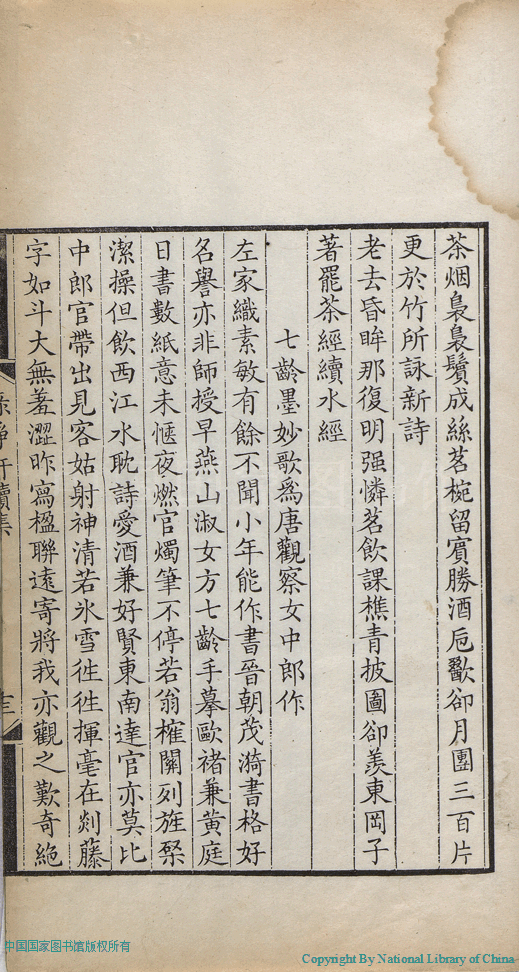 茶烟裊裊鬢成絲茗椀留賓勝酒卮歠卻月團三百片
更於竹所詠新詩
老去昏眸那復明强憐茗飲課樵青披圖卻羨東岡子
著罷茶經續水經
七齡墨妙歌爲唐觀察女中郎作
左家織素敏有餘不聞小年能作書晉朝茂漪書格好
名譽亦非師授早燕山淑女方七齡手摹歐褚兼黃庭
日書數紙意未愜夜燃官燭筆不停若翁榷關列旌棨
潔操但飲西江水耽詩愛酒兼好賢東南達官亦莫比
中郎官帶出見客姑射神清若氷雪徃徃揮毫在剡藤
字如斗大無羞澀昨寫楹聯遠寄將我亦觀之歎奇絶
中国国家图书馆版权所有
Copyright By National Library of China